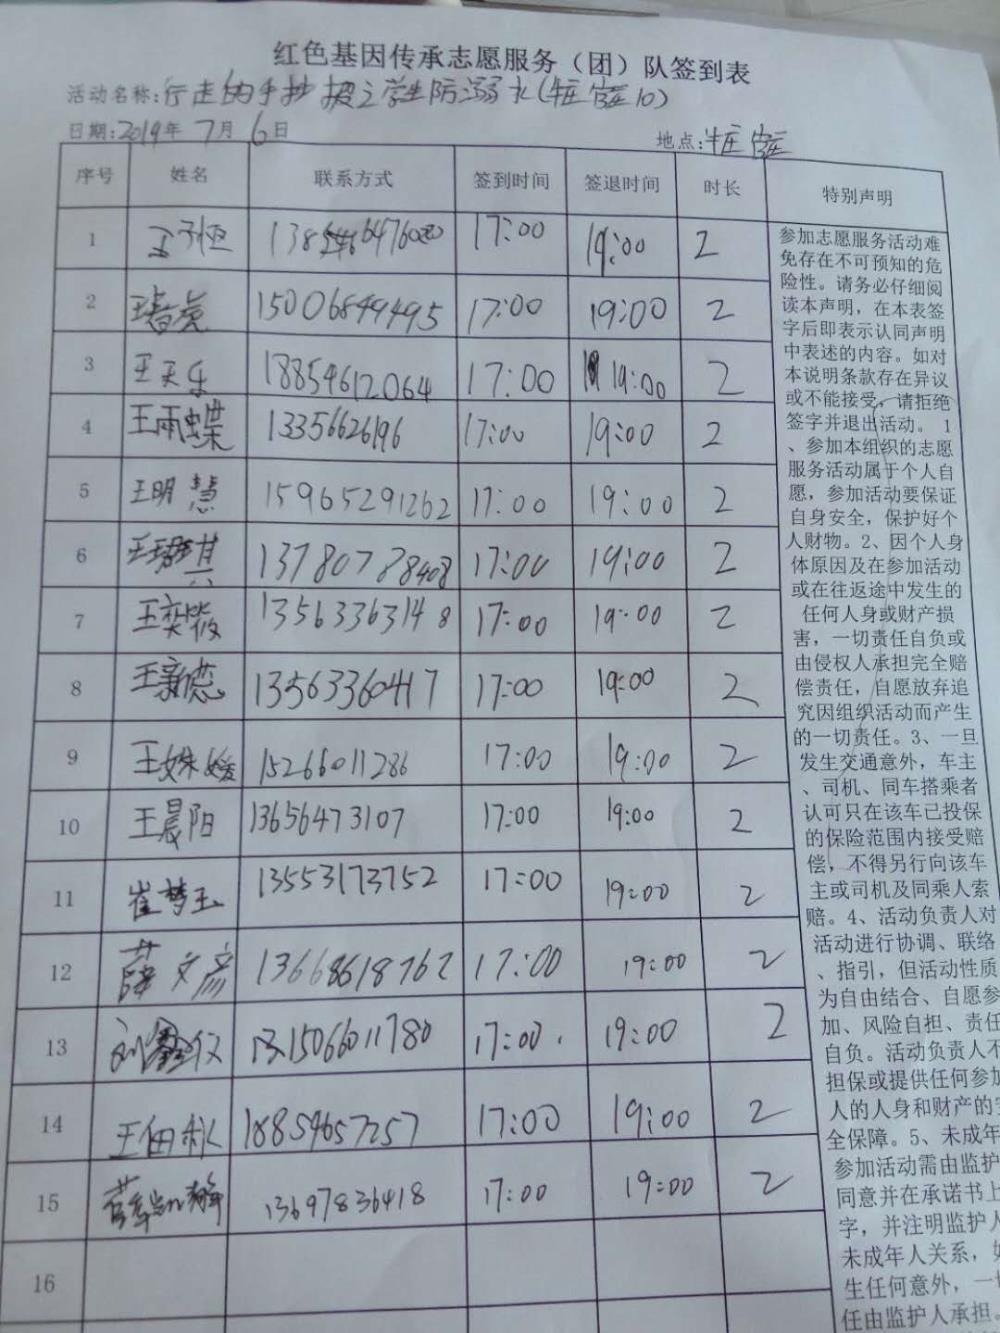 红色基因传承志愿服务（团）队签到表
活动名称:行走的手抄报之学生防溺水(牛庄 官庄10)
日期:2019年7月6日 地点:牛庄 官庄
序号 姓名 联系方式 签到时间 签退时间 时长 特别声明
1 王子恒 17:00 19:00 2
2 15006849495 17:00 19:00 2
3 王天乐 18854612064 17:00 19:00 2
4 王雨蝶 13356626196 17:00 19:00 2
5 王明慧 15965291262 17:00 19:00 2
6 13780778408 17:00 19:00 2
7 王奕筱 13563363148 17:00 19:00 2
8 王新蕊 13563360417 17:00 19:00 2
9 王姝媛 15266011286 17:00 19:00 2
10 王晨阳 13656473107 17:00 19:00 2
11 崔梦玉 13553173752 17:00 19:00 2
12 薛文彦 13668618762 17:00 19:00 2
13 15066011780 17:00. 19:00 2
14 王佃秋 18854657257 17:00 19:00 2
15 13697836418 17:00 19:00 2
16
参加志愿服务活动难
免存在不可预知的危
险性。请务必仔细阅
读本声明，在本表签
字后即表示认同声明
中表述的内容。如对
本说明条款存在异议
或不能接受，请拒绝
签字并退出活动。 1
、参加本组织的志愿
服务活动属于个人自
愿，参加活动要保证
自身安全，保护好个
人财物。2、因个人身
体原因及在参加活动
或在往返途中发生的
任何人身或财产损
害，一切责任自负或
由侵权人承担完全赔
偿责任，自愿放弃追
究因组织活动而产生
的一切责任。3、一旦
发生交通意外，车主
、司机、同车搭乘者
认可只在该车已投保
的保险范围内接受赔
偿，不得另行向该车
主或司机及同乘人索
赔。4、活动负责人对
活动进行协调、联络
、指引，但活动性质
为自由结合、自愿参
加、风险自担、责任
自负。活动负责人不
担保或提供任何参加
人的人身和财产的
全保障。5、未成年
参加活动需由监护
同意并在承诺书上
字，并注明监护人
未成年人关系，如
生任何意外，一
任由监护人承担。